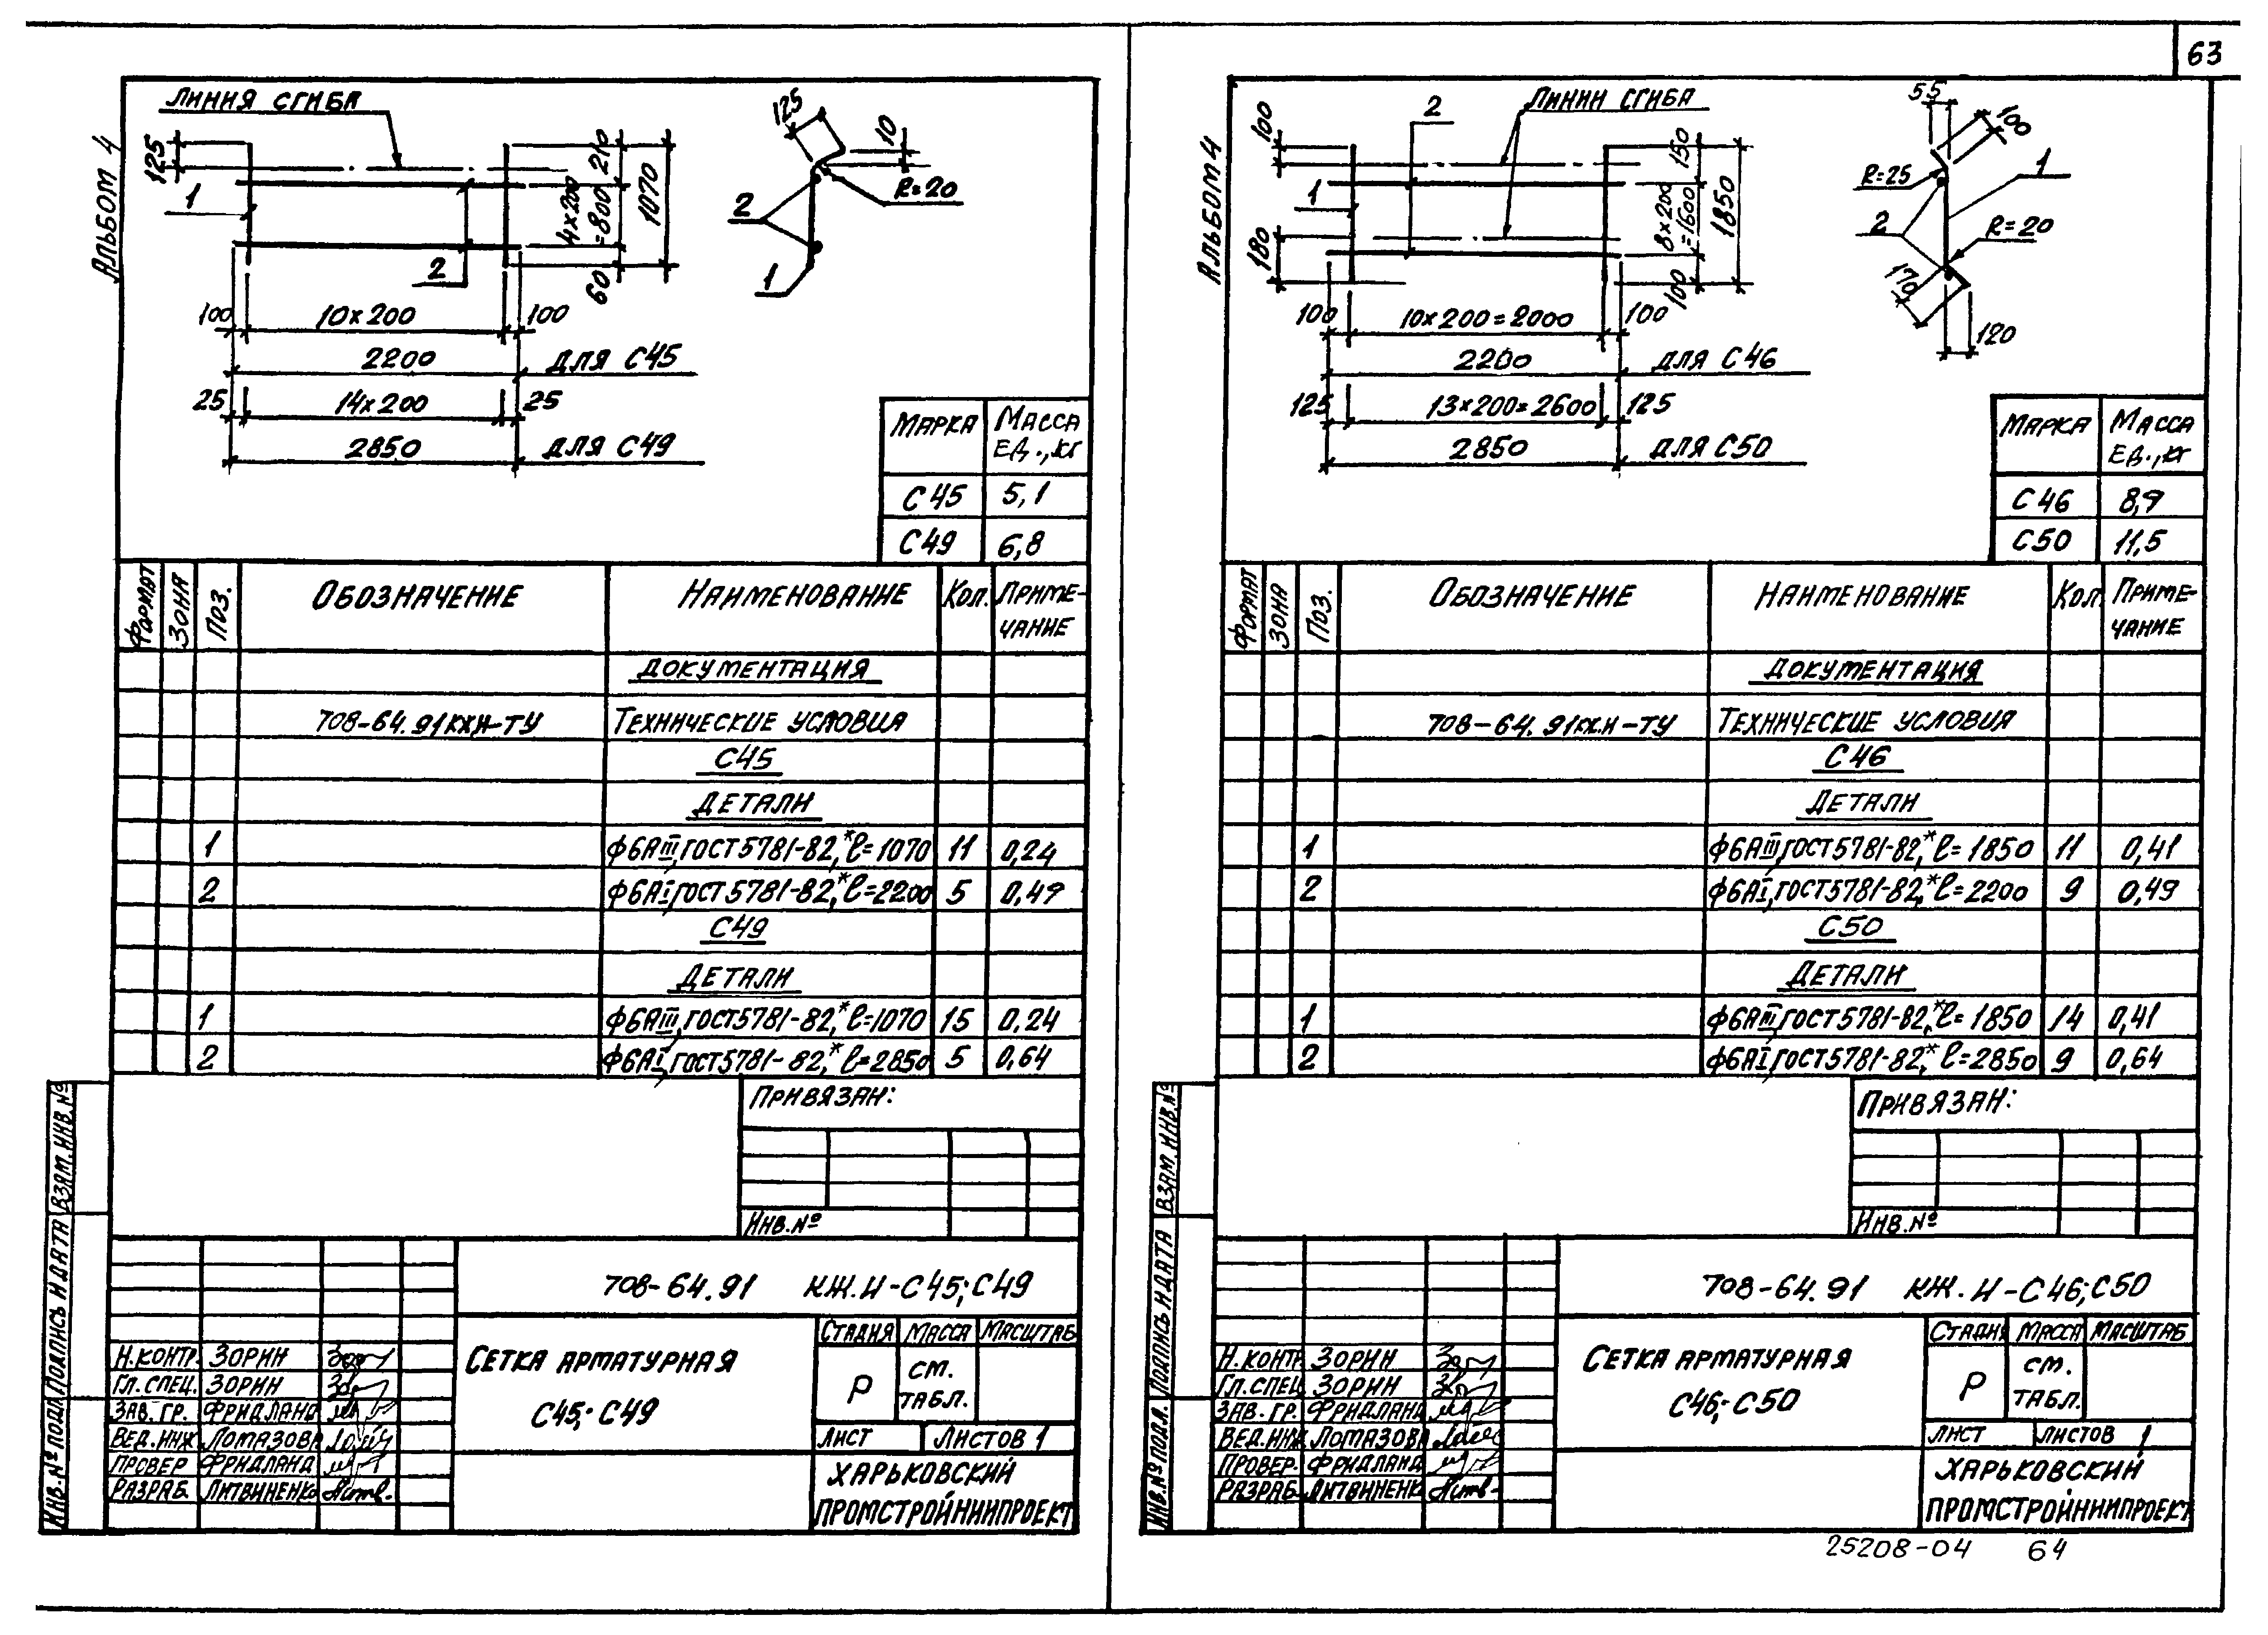 63
Альбом 4
Линия сгиба
125
1
2
210
4×200
=800
1070
60
100
10×200
100
2200
для С45
25
14×200
25
2850
для С49
125
10
R=20
2
1
Марка Масса ед., кг
С45 5,1
С49 6,8
Формат Зона Поз. Обозначение Наименование Кол. Приме-
чание
Документация
708-64.91КЖИ-ТУ Технические условия
С45
Детали
1 ф6АIII, ГОСТ5781-82,* ℓ=1070 11 0,24
2 ф6АI, ГОСТ5781-82,* ℓ=2200 5 0,49
С49
Детали
1 ф6АIII, ГОСТ5781-82,* ℓ=1070 15 0,24
2 ф6АI, ГОСТ5781-82,* ℓ=2850 5 0,64
Привязан:
Инв.№
Взам.инв.№
Подпись и дата
Инв.№ подл.
708-64.91 КЖ.И-С45;С49
Н.контр. Зорин
Гл.спец. Зорин
Зав.гр. Фридланд
Вед.инж Ломазова
Провер Фридланд
Разраб. Литвиненко
Сетка арматурная
С45; С49
Стадия Масса Масштаб
Р см.
табл.
Лист Листов 1
Харьковский
Промстройниипроект
Альбом 4
Линии сгиба
100
2
1
180
150
8×200
=1600
1850
100
100
10×200=2000
100
2200
для С46
125
13×200=2600
125
2850
для С50
55
100
R=25
1
2
R=20
170
120
Марка Масса ед., кг
С46 8,9
С50 11,5
Формат Зона Поз. Обозначение Наименование Кол. Приме-
чание
Документация
708-64.91КЖ.И-ТУ Технические условия
С46
Детали
1 ф6АIII, ГОСТ5781-82,* ℓ=1850 11 0,41
2 ф6АI, ГОСТ5781-82,* ℓ=2200 9 0,49
С50
Детали
1 ф6АIII, ГОСТ5781-82,* ℓ=1850 14 0,41
2 ф6АI, ГОСТ5781-82,* ℓ=2850 9 0,64
Привязан:
Инв.№
Взам.инв.№
Подпись и дата
Инв.№ подл.
708-64.91 КЖ.И-С46;С50
Н.контр Зорин
Гл.спец Зорин
Зав.гр. Фридланд
Вед.инж Ломазова
Провер. Фридланд
Разраб. Литвиненко
Сетка арматурная
С46; С50
Стадия Масса Масштаб
Р см.
табл.
Лист Листов 1
Харьковский
Промстройниипроект
25208-04 64